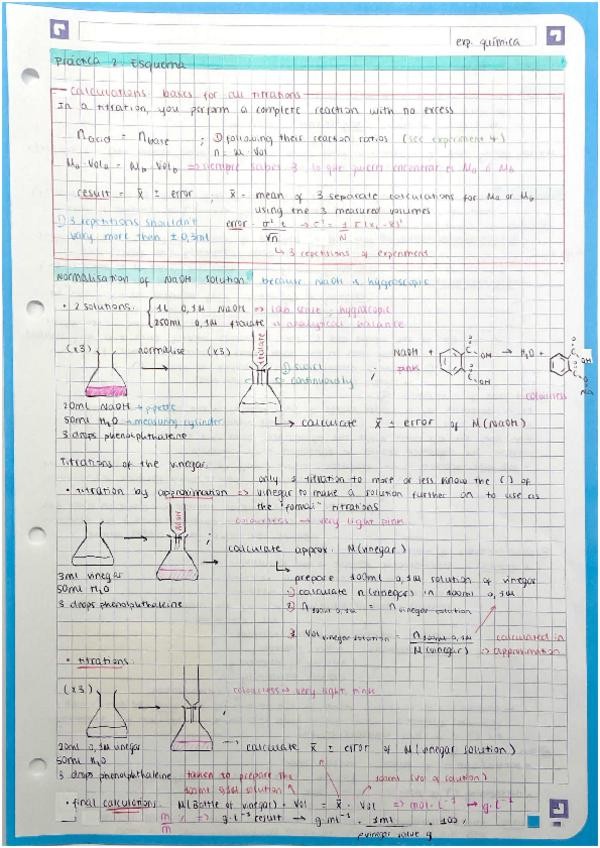 exp. química
práctica 2. Esquema
calculations bases for all titrations
In a titration, you perform a complete reaction with no excess
n acid = n base ; ① following their reaction ratios (see experiment 4)
n = M · Vol
Ma · Vola = Mb · Volb ⇒ siempre sabes 3, lo que quieres encontrar es Ma o Mb
result = x̄ ± error , x̄ = mean of 3 separate calculations for Ma or Mb
using the 3 measured volumes
① 3 repetitions shouldn't
vary more than ± 0,3ml
error =
↳ 3 repetitions of experiment
Normalisation of NaOH solution because NaOH is hygroscopic
• 2 solutions: 1L 0,1M NaOH ⇒ can scale, hygroscopic
250ml 0,1M ftalate ⇒ analytical balance
(x3) normalise (x3) ftalate
① swirl
continuously
NaOH + → H2O +
pink colourless
C OH C OH C OH C O Na
20ml NaOH → pipette
50ml H2O → measuring cylinder
3 drops phenolphthaleine
↳ calculate x̄ ± error of M(NaOH)
Titrations of the vinegar.
only 1 titration to more or less know the [ ] of
• titration by approximation ⇒ vinegar to make a solution further on to use as
the "formal" titrations
NaOH
colourless → very light pink
calculate approx. M(vinegar)
3ml vinegar
50ml H2O
3 drops phenolphthaleine
↳ prepare 100ml 0,1M solution of vinegar
① calculate n(vinegar) in 100ml 0,1M
② n 100ml 0,1M = n vinegar solution
3. Vol vinegar solution = n 100ml 0,1M / M(vinegar)
calculated in
approximation
• titrations
(x3)
colourless → very light pink
20ml 0,1M vinegar
50ml H2O
3 drops phenolphthaleine
→ calculate x̄ ± error of M(vinegar solution)
taken to prepare the
100ml 0,1M solution
100ml (vol of solution)
• final calculations: M(Bottle of vinegar) · Vol = x̄ · Vol ⇒ mol · L⁻¹ → g·L⁻¹
m/m % ⇒ g·L⁻¹ result → g·ml⁻¹ · 1ml · 100,